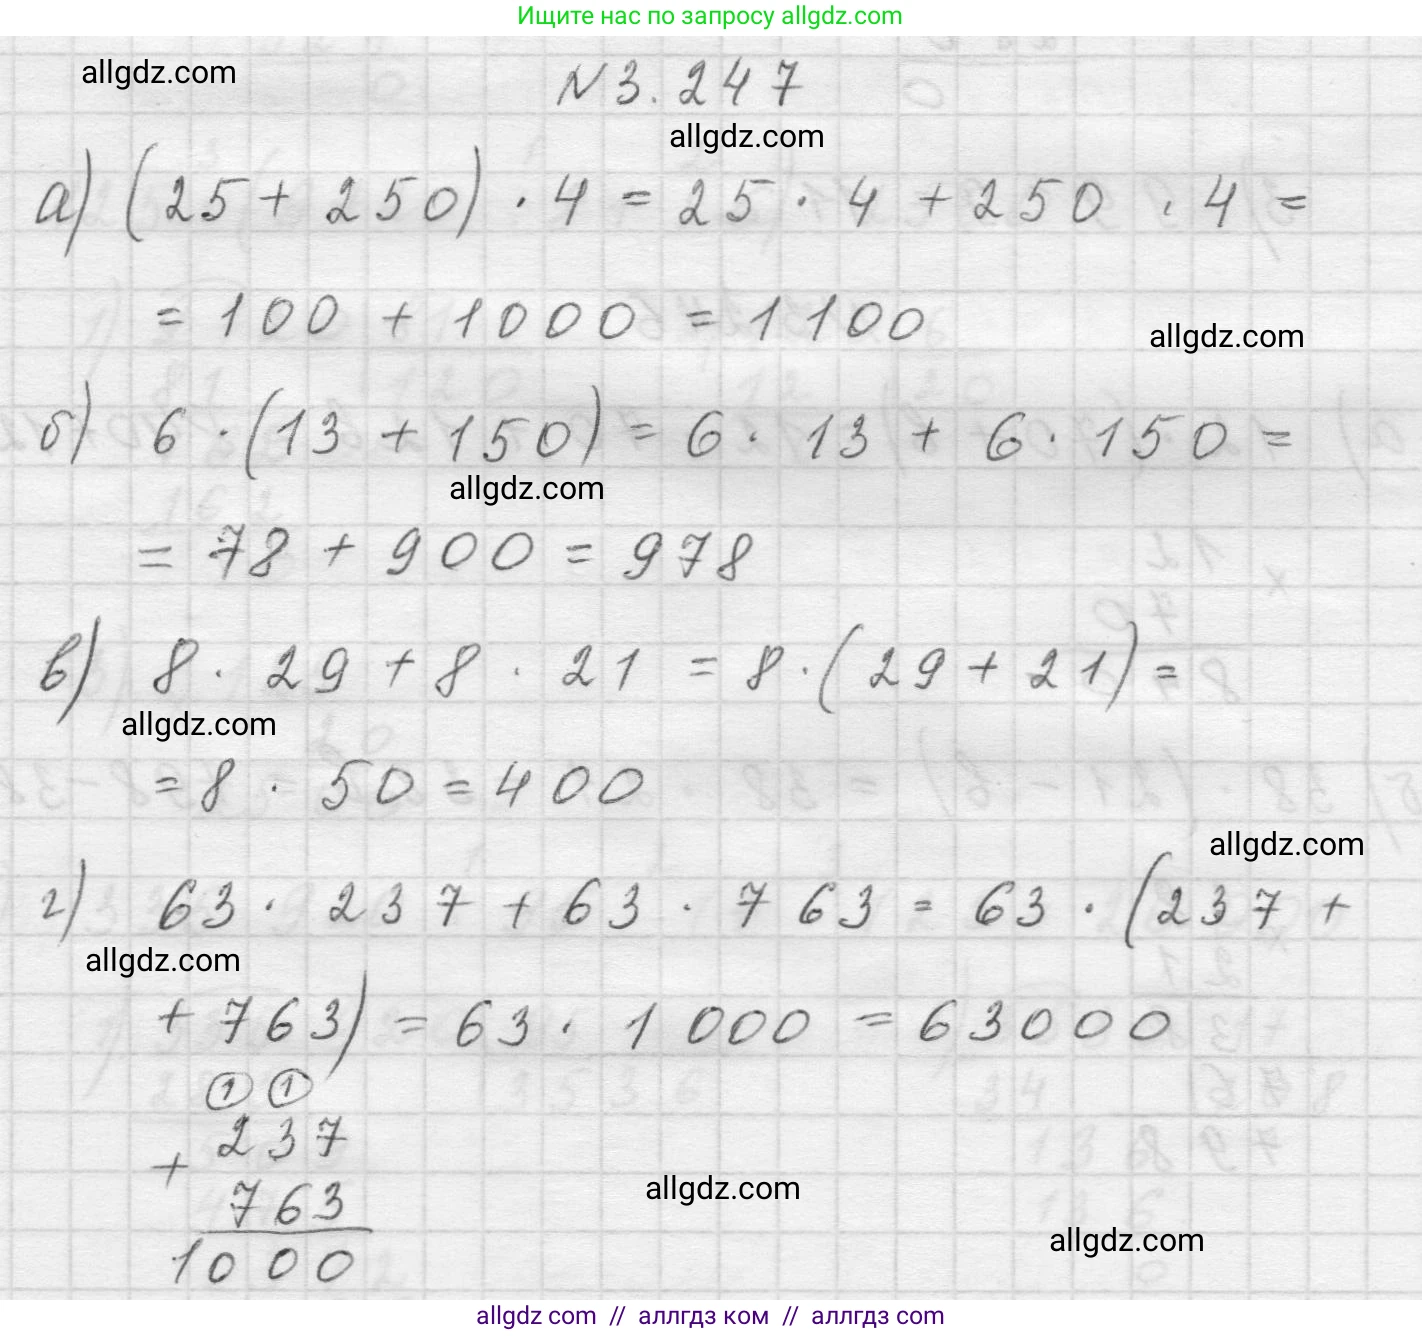 Ищите нас по запросу allgdz.com
allgdz.com
N 3.247
allgdz.com
а) (25 + 250) · 4 = 25 · 4 + 250 · 4 =
= 100 + 1000 = 1100
allgdz.com
б) 6 · (13 + 150) = 6 · 13 + 6 · 150 =
allgdz.com
= 78 + 900 = 978
в) 8 · 29 + 8 · 21 = 8 · (29 + 21) =
allgdz.com
= 8 · 50 = 400
allgdz.com
г) 63 · 237 + 63 · 763 = 63 · (237 +
allgdz.com
+ 763) = 63 · 1000 = 63000
1 1
237
+
763
1000
allgdz.com
allgdz.com
allgdz.com // аллгдз ком // аллгдз.com